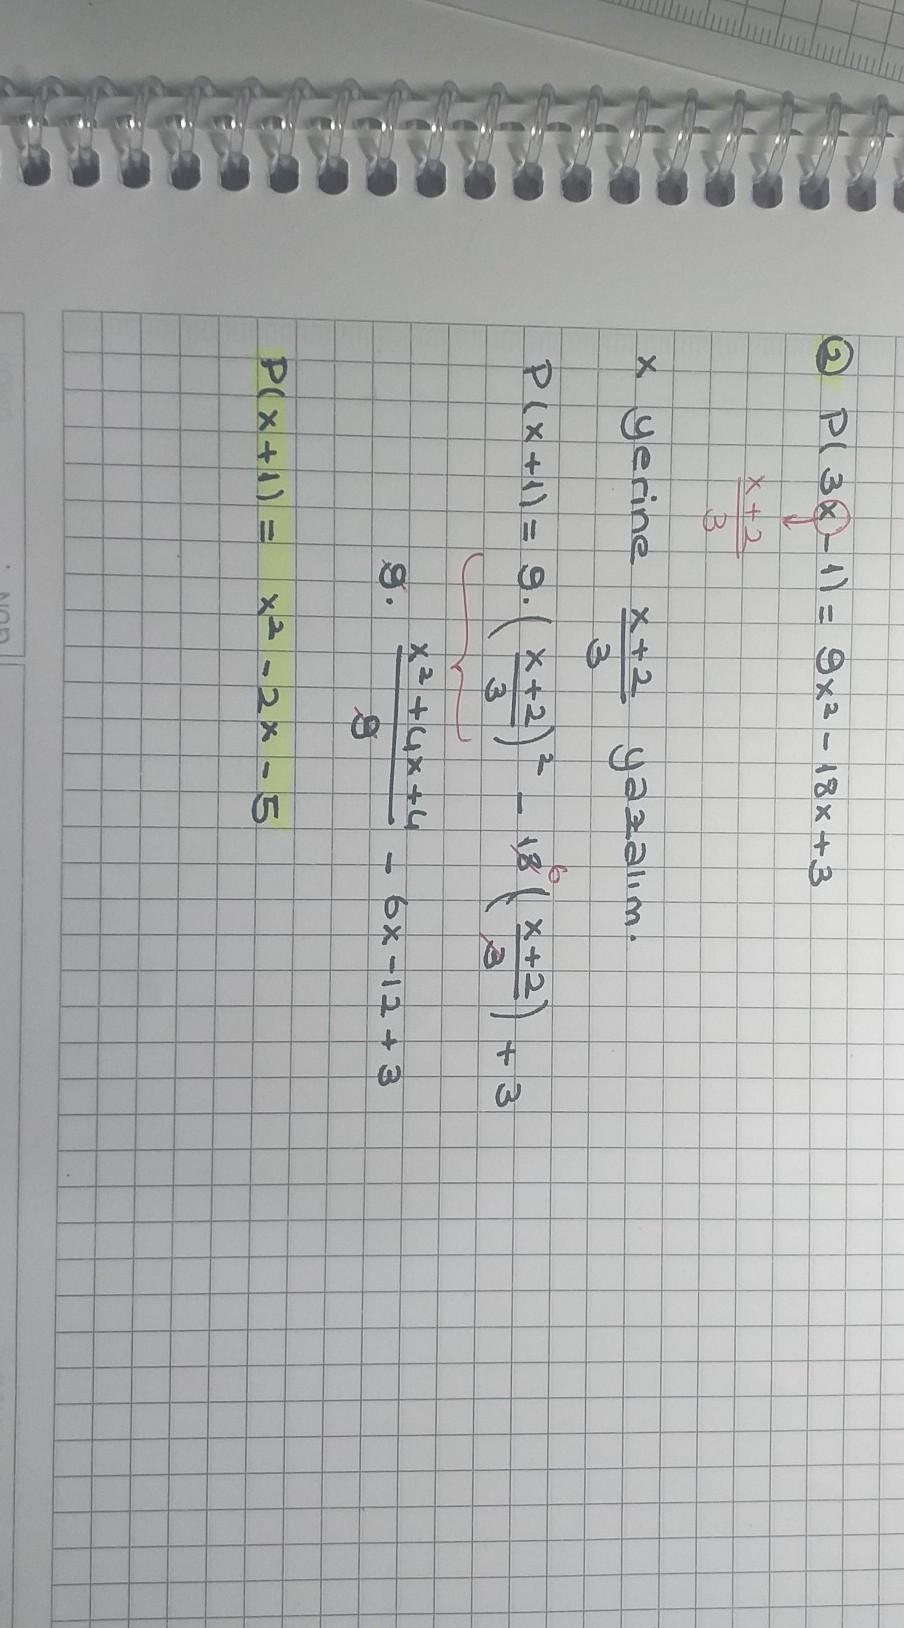 ② P(3x-1) = 9x² - 18x + 3
x+2
3
x yerine x+2/3 yazalım.
P(x+1) = 9.(x+2/3)² - 18 6 (x+2/3) + 3
9. x²+4x+4/9 - 6x - 12 + 3
P(x+1) = x² - 2x - 5